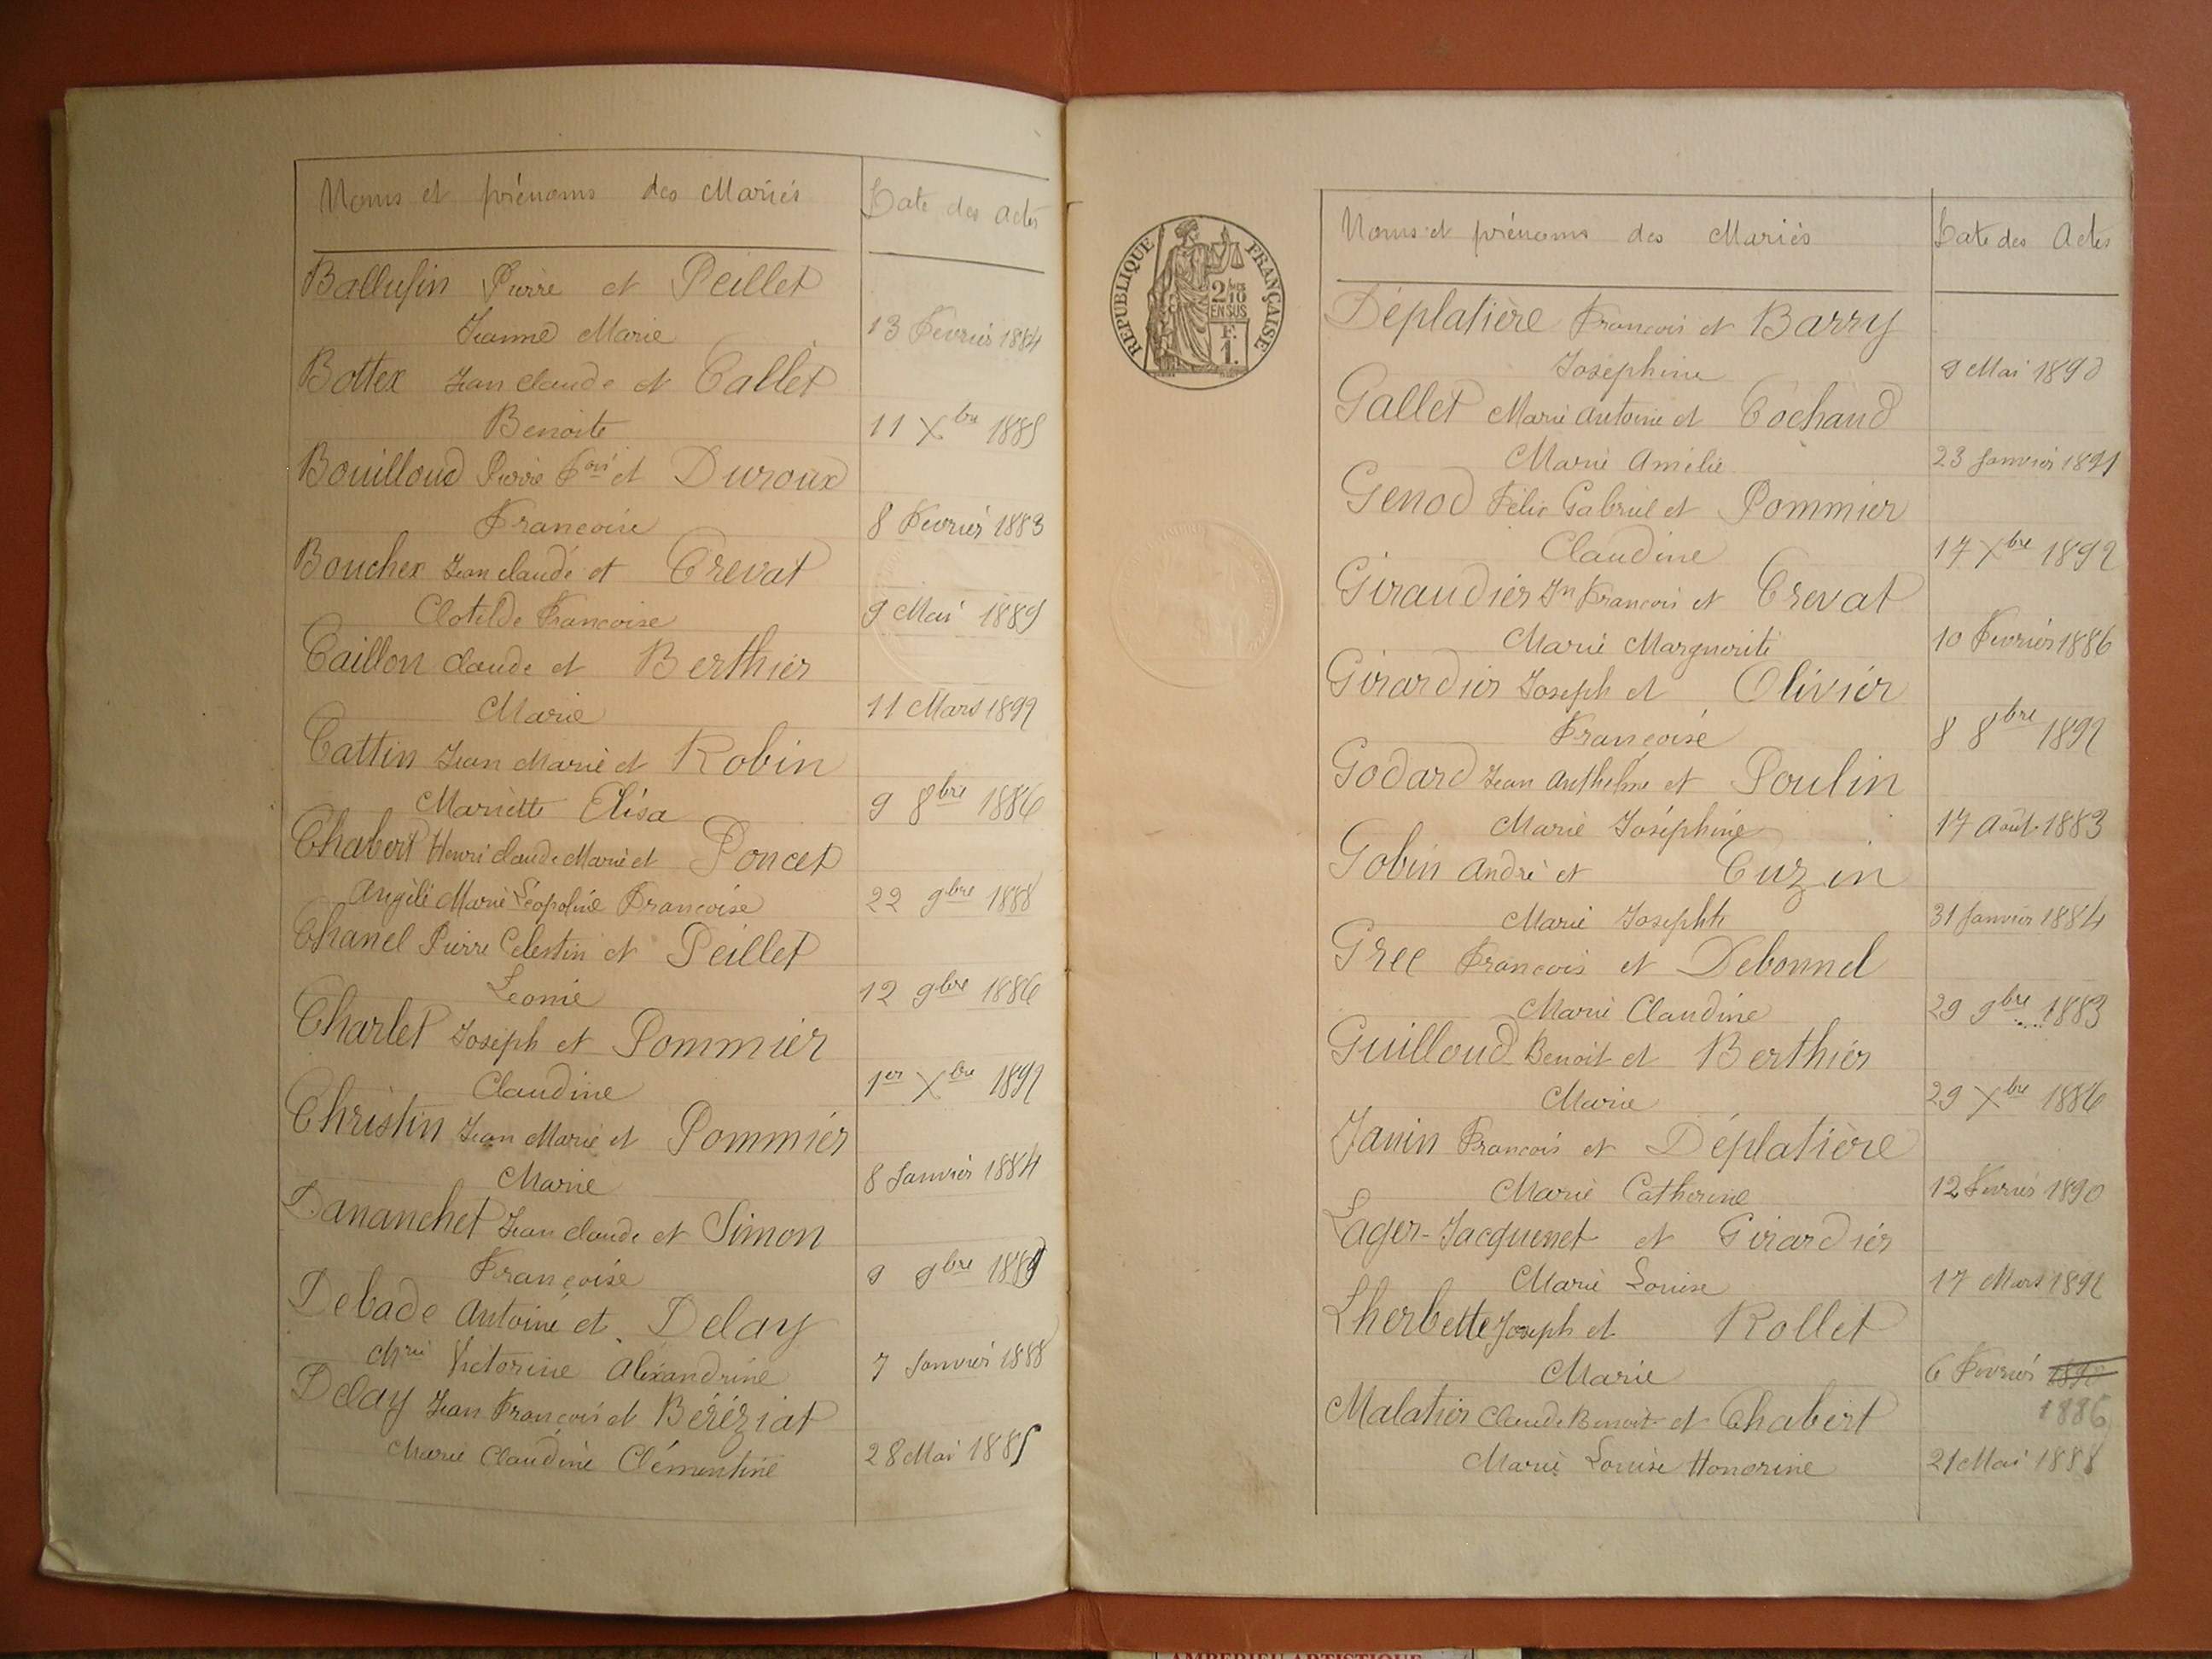 Noms et prénoms des Mariés
Date des actes
Ballufin Pierre et Peillet
Jeanne Marie 13 Février 1884
Bottex Jean Claude et Callet
Benoite 11 Xbre 1885
Bouilloud Pierre Fois et Duroux
Françoise 8 Février 1883
Bouchex Jean Claude et Crevat
Clotilde Françoise 9 Mai 1889
Caillon Claude et Berthier
Marie 11 Mars 1892
Cattin Jean Marie et Robin
Mariette Elisa 9 8bre 1886
Chabert Henri Claude Marie et Poncet
Angéle Marie Léopoline Françoise 22 9bre 1888
Chanel Pierre Celestin et Peillet
Leonie 12 9bre 1886
Charlet Joseph et Pommier
Claudine 1er Xbre 1892
Christin Jean Marie et Pommier
Marie 8 Janvier 1884
Dananchet Jean Claude et Simon
Françoise 9 9bre 1889
Debade Antoine et Delay
Mrie Victorine Aléxandrine 7 Janvier 1888
Delay Jean François et Béréziat
Marie Claudine Clémentine 28 Mai 1885
RÉPUBLIQUE FRANÇAISE
2/10
EN SUS
F.
1.
Noms et prénoms des Mariés
Date des Actes
Déplatière François et Barry
Joséphine 9 Mai 1890
Gallet Marie Antoine et Cochaud
Marie Amélie 23 Janvier 1891
Genod Félix Gabriel et Pommier
Claudine 17 Xbre 1892
Giraudier Jn François et Crevat
Marie Marguerite 10 Février 1886
Girardier Joseph et Olivier
Françoise 8 8bre 1892
Godard Jean Anthelme et Poulin
Marie Joséphine 17 Août 1883
Gobin André et Cuzin
Marie Josephte 31 Janvier 1884
Grec François et Debonnel
Marie Claudine 29 9bre 1883
Guilloud Benoit et Berthier
Marie 29 Xbre 1886
Janin François et Déplatière
Marie Catherine 12 Février 1890
Lager-Jacquenet et Girardier
Marie Louise 17 Mars 1892
Lherbette Joseph et Rollet
Marie 6 Février
1886
Malatier Claude Benoit et Chabert
Marie Louise Honorine 21 Mai 1888
AMBERIEU ARTISTIQUE